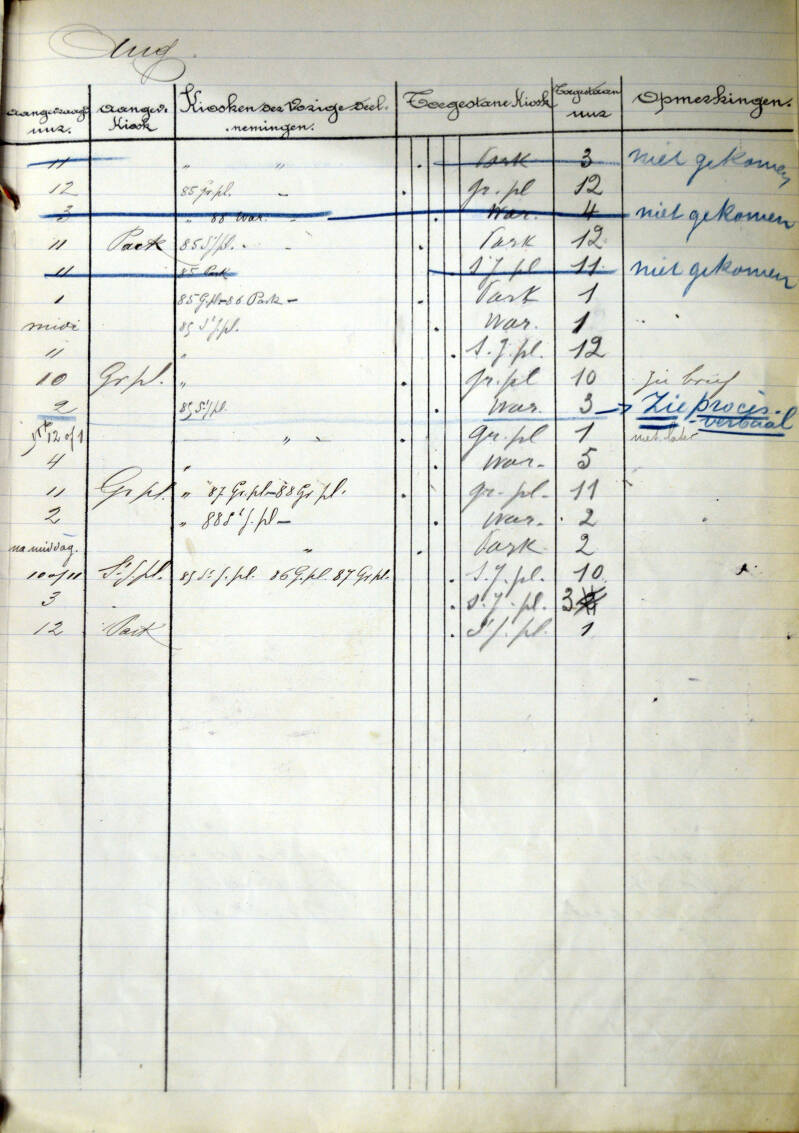 Aug.
Aangevraagd uur. Aangev. Kiosk Kiosken der Vorige Deelnemingen. Toegestane Kiosk Toegestaan uur Opmerkingen.
11 " " Park 3 niet gekomen
12 85 Gr. pl. - gr. pl 12
3 " 88 War. - War. 4 niet gekomen
11 Park 85 S.J. pl. - Park 12
11 85 Park S.J. pl 11 niet gekomen
1 85 G. pl - 86 Park - Park 1
midi 85 St J. pl. War. 1
11 " S.J. pl. 12
10 Gr pl. " gr. pl 10 Zie brief
2 85 St J. pl. War. 3 → Zie proces-verbaal
12 of 1 " " gr. pl 1 niet later
4 " War. 5
11 Gr pl. " 87 Gr. pl - 88 Gr pl. gr. pl. 11
2 " 88 St J. pl - War. 2
namiddag. " Park 2
10 of 11 St J. pl. 85 St J. pl. 86 G. pl. 87 Gr pl. S.J. pl. 10
3 S.J. pl. 3
12 Park St J. pl. 1